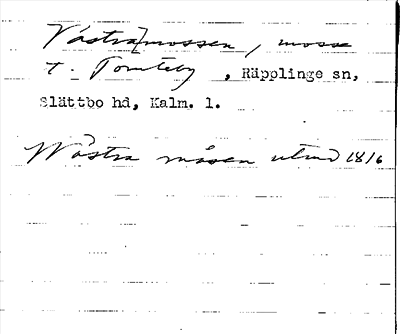 Västra[mossen, mosse
t. Tomteby, Räpplinge sn,
Slättbo hd, Kalm. l.
Wästra måsen utmd 1816